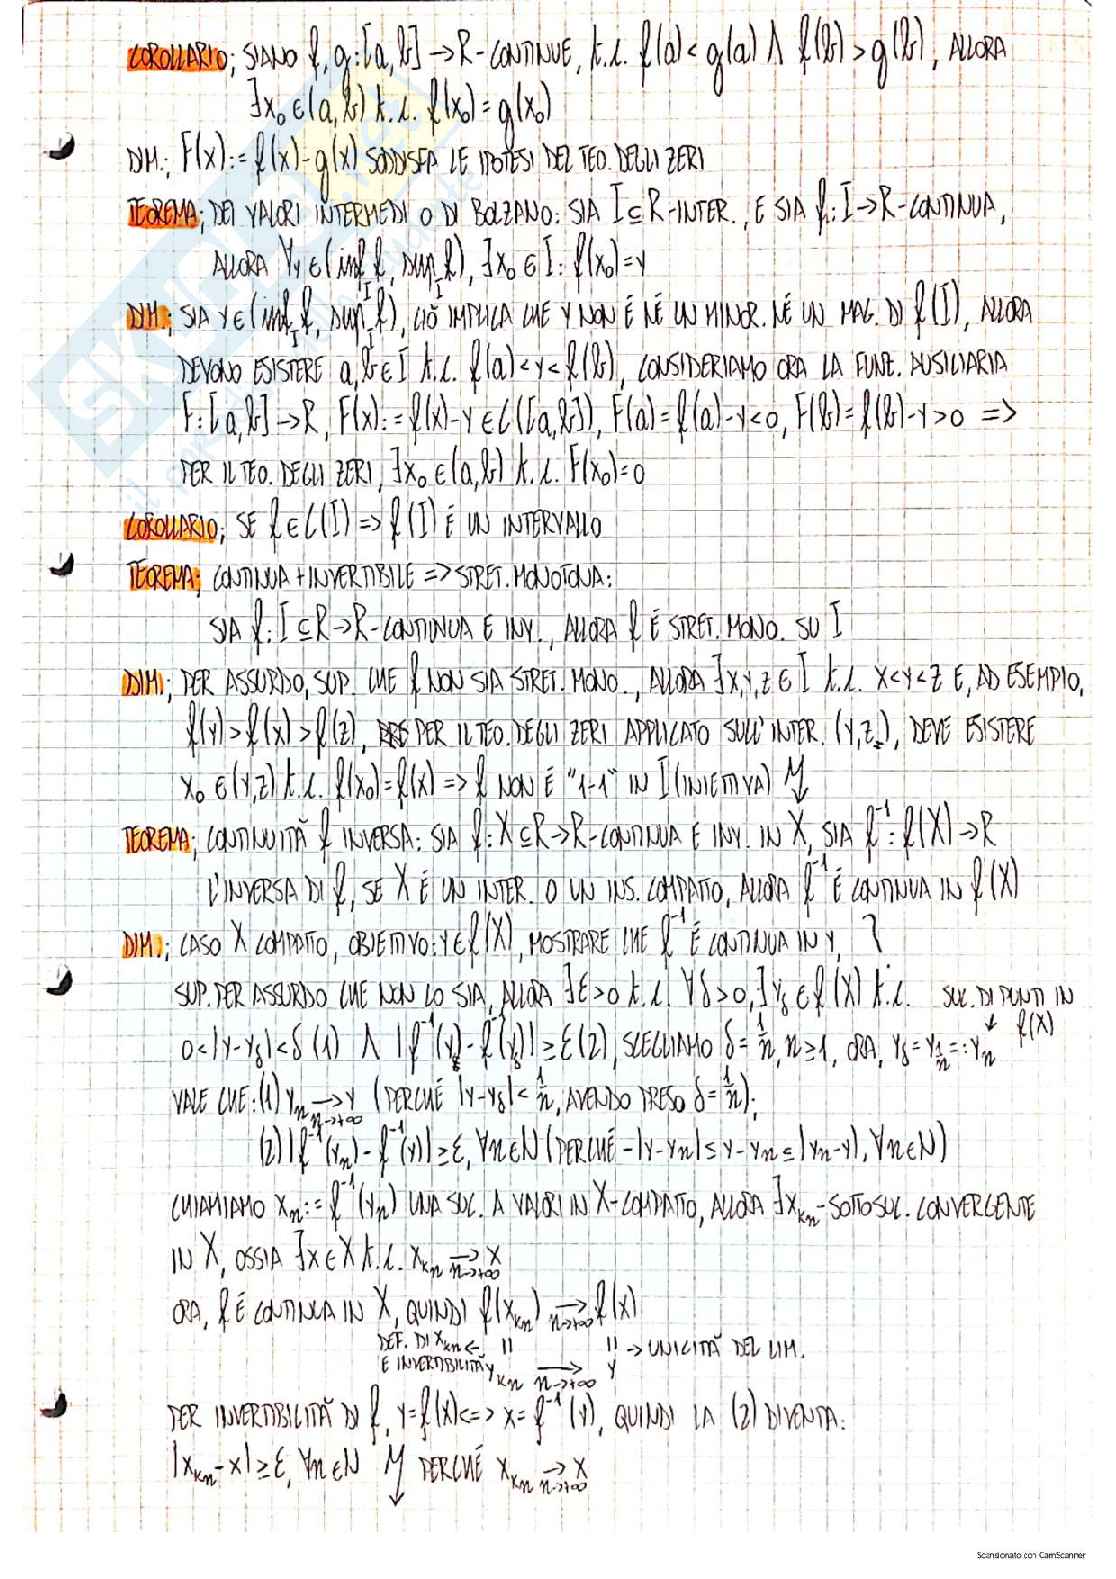 COROLLARIO; SIANO f, g: [a, b] → R - CONTINUE, t.c. f(a) < g(a) ∧ f(b) > g(b), ALLORA
∃x₀ ∈ (a, b) t.c. f(x₀) = g(x₀)
DIM.; F(x) := f(x) - g(x) SODDISFA LE IPOTESI DEL TEO. DEGLI ZERI
TEOREMA; DEI VALORI INTERMEDI O DI BOLZANO: SIA I ⊆ R - INTER., E SIA f: I → R - CONTINUA,
ALLORA ∀y ∈ (inf_I f, sup_I f), ∃x₀ ∈ I: f(x₀) = y
DIM; SIA y ∈ (inf_I f, sup_I f), CIÒ IMPLICA CHE y NON É NÉ UN MINOR. NÉ UN MAG. DI f(I), ALLORA
DEVONO ESISTERE a, b ∈ I t.c. f(a) < y < f(b), CONSIDERIAMO ORA LA FUNZ. AUSILIARIA
F: [a, b] → R, F(x) := f(x) - y ∈ C([a, b]), F(a) = f(a) - y < 0, F(b) = f(b) - y > 0 =>
PER IL TEO. DEGLI ZERI, ∃x₀ ∈ (a, b) t.c. F(x₀) = 0
COROLLARIO; SE f ∈ C(I) => f(I) É UN INTERVALLO
TEOREMA; CONTINUA + INVERTIBILE => STRET. MONOTONA:
SIA f: I ⊆ R → R - CONTINUA E INV., ALLORA f É STRET. MONO. SU I
DIM; PER ASSURDO, SUP. CHE f NON SIA STRET. MONO., ALLORA ∃x, y, z ∈ I t.c. x < y < z E, AD ESEMPIO,
f(y) > f(x) > f(z), PER IL TEO. DEGLI ZERI APPLICATO SULL'INTER. (y, z), DEVE ESISTERE
x₀ ∈ (y, z) t.c. f(x₀) = f(x) => f NON É "1-1" IN I (INIETTIVA)
TEOREMA; CONTINUITÀ f INVERSA: SIA f: X ⊆ R → R - CONTINUA E INV. IN X, SIA f⁻¹: f(X) → R
L'INVERSA DI f, SE X É UN INTER. O UN INS. COMPATTO, ALLORA f⁻¹ É CONTINUA IN f(X)
DIM.; CASO X COMPATTO, OBIETTIVO: y ∈ f(X), MOSTRARE CHE f⁻¹ É CONTINUA IN y, ?
SUP. PER ASSURDO CHE NON LO SIA, ALLORA ∃ε > 0 t.c. ∀δ > 0, ∃y_δ ∈ f(X) t.c. SUC. DI PUNTI IN f(X)
0 < |y - y_δ| < δ (1) ∧ |f⁻¹(y) - f⁻¹(y_δ)| ≥ ε (2), SCEGLIAMO δ = 1/n, n ≥ 1, ORA, y_δ = y_{1/n} =: y_n
VALE CHE: (1) y_n →_{n→+∞} y (PERCHÉ |y - y_δ| < 1/n, AVENDO PRESO δ = 1/n);
(2) |f⁻¹(y_n) - f⁻¹(y)| ≥ ε, ∀n ∈ N (PERCHÉ -|y - y_n| ≤ y - y_n ≤ |y_n - y|, ∀n ∈ N)
CHIAMIAMO x_n := f⁻¹(y_n) UNA SUC. A VALORI IN X - COMPATTO, ALLORA ∃x_{k_n} - SOTTOSUC. CONVERGENTE
IN X, OSSIA ∃x ∈ X t.c. x_{k_n} →_{n→+∞} x
ORA, f É CONTINUA IN X, QUINDI f(x_{k_n}) →_{n→+∞} f(x)
DEF. DI x_{k_n} ← || || → UNICITÀ DEL LIM.
E INVERTIBILITÀ y_{k_n} →_{n→+∞} y
PER INVERTIBILITÀ DI f, y = f(x) <=> x = f⁻¹(y), QUINDI LA (2) DIVENTA:
|x_{k_n} - x| ≥ ε, ∀n ∈ N PERCHÉ x_{k_n} →_{n→+∞} x
Scansionato con CamScanner